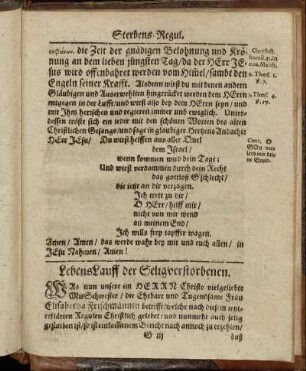 Sterbens-Regul.
die Zeit der gnädigen Belohnung und Krö-
nung an dem lieben jüngsten Tag / da der HErr JE-
sus wird offenbahret werden vom Himel / sambt den
Engeln seiner Krafft. Alsdenn wirst du mit denen andern
Gläubigen und Auserwehlten hingerücket werden dem HErrn
entgegen in der Lufft / und wirst also bey dem HErrn seyn / und
mit Ihm herrschen und regieren immer und ewiglich. Unter-
dessen tröste sich ein jeder mit den schönen Worten des alten
Christlichen Gesangs / und sage in gläubiger Hertzens Andacht:
HErr JEsu / Du wirst helffen aus aller Quel
dem Israel /
wenn kommen wird dein Tag:
Und wirst verdammen durch dein Recht
das gottloß G'schlecht /
die jetzt an dir verzagen.
Ich trett zu dir /
O HErr / hilff mir /
nicht von mir wend
an meinem End /
Ich wills frey tapffer wagen.
Amen / Amen / das werde wahr bey mir und euch allen / in
JEsu Nahmen / Amen!
2. Thess. 1.
v. 7.
1. Thess. 4.
v. 17.
Cant. O
GOtt ver-
leih mir dein
Gnad.
Lebens Lauff der Seligverstorbenen.
WAs nun unsere im HERRN Christo vielgeliebte
MitSchwester / die Ehrbare und Tugendsame Frau
Elisabetha Frischmannin betrifft / welche nach diesen itzt-
erklärten Regulen Christlich gelebet / und nunmehr auch selig
gestorben ist / so ist einfältigem Bericht nach von ihr zu erzehlen /
G iij
daß